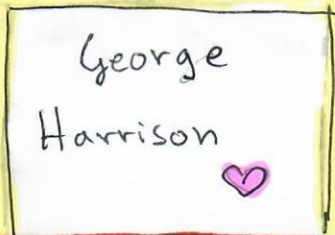 George
Harrison